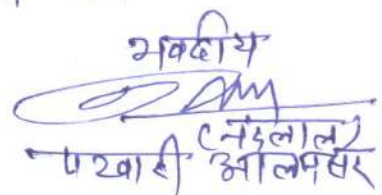 भवदीय
(नंदलाल)
पटवारी आलमसर